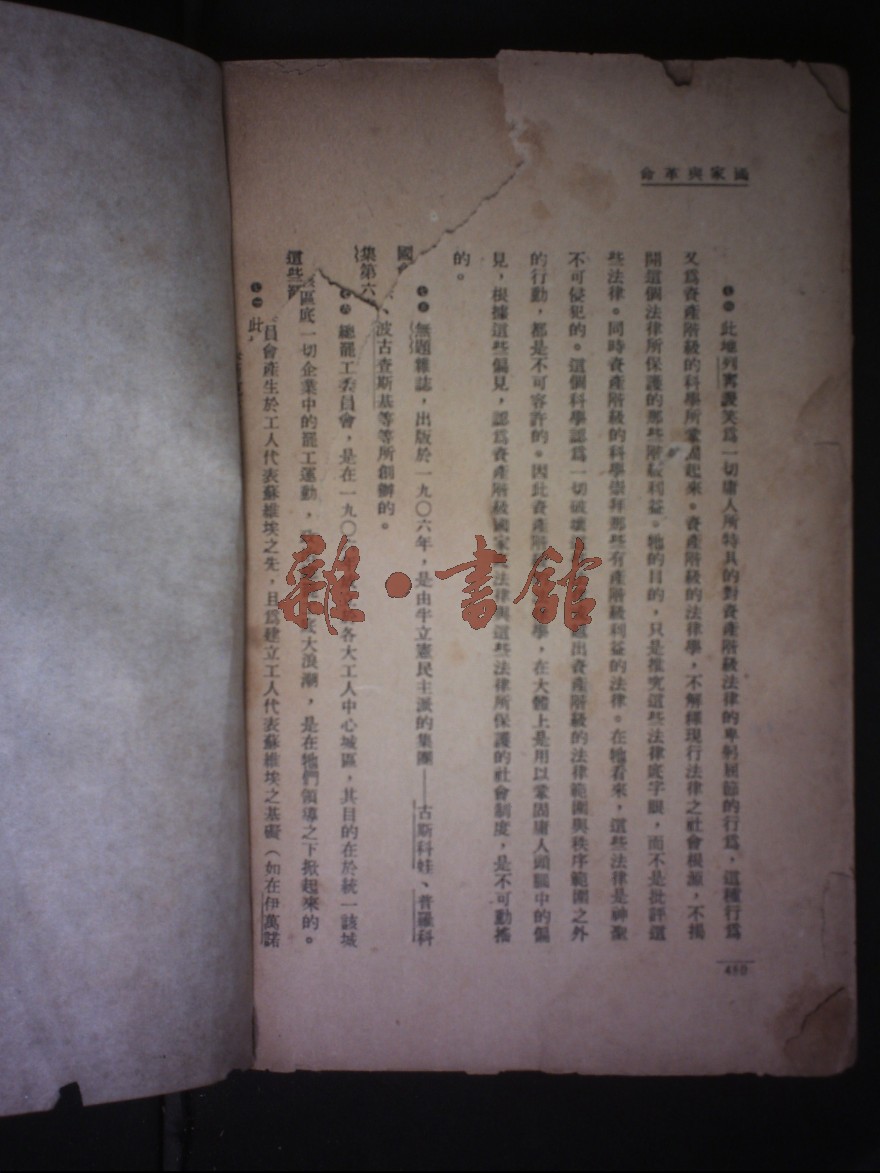 國家與革命
此地列寧譏笑爲一切庸人所特具的對資產階級法律的卑躬屈節的行爲，這種行爲
又爲資產階級的科學所鞏固起來。資產階級的法律學，不解釋現行法律之社會根源，不揭
開這個法律所保護的那些階級利益。牠的目的，只是推究這些法律底字眼，而不是批評這
些法律。同時資產階級的科學崇拜那些有產階級利益的法律。在牠看來，這些法律是神聖
不可侵犯的。這個科學認爲一切破壞出資產階級的法律範圍與秩序範圍之外
的行動，都是不可容許的。因此資產階學，在大體上是用以鞏固庸人頭腦中的偏
見，根據這些偏見，認爲資產階級國家法律與這些法律所保護的社會制度，是不可動搖
的。
無題雜誌，出版於一九〇六年，是由半立憲民主派的集團——古斯科娃、普羅科
國、波古查斯基等等所創辦的。
集第六總罷工委員會，是在一九〇各大工人中心城區，其目的在於統一該城
這些區底一切企業中的罷工運動，底大浪潮，是在牠們領導之下掀起來的。
此員會產生於工人代表蘇維埃之先，且爲建立工人代表蘇維埃之基礎（如在伊萬諾
480
雜·書館